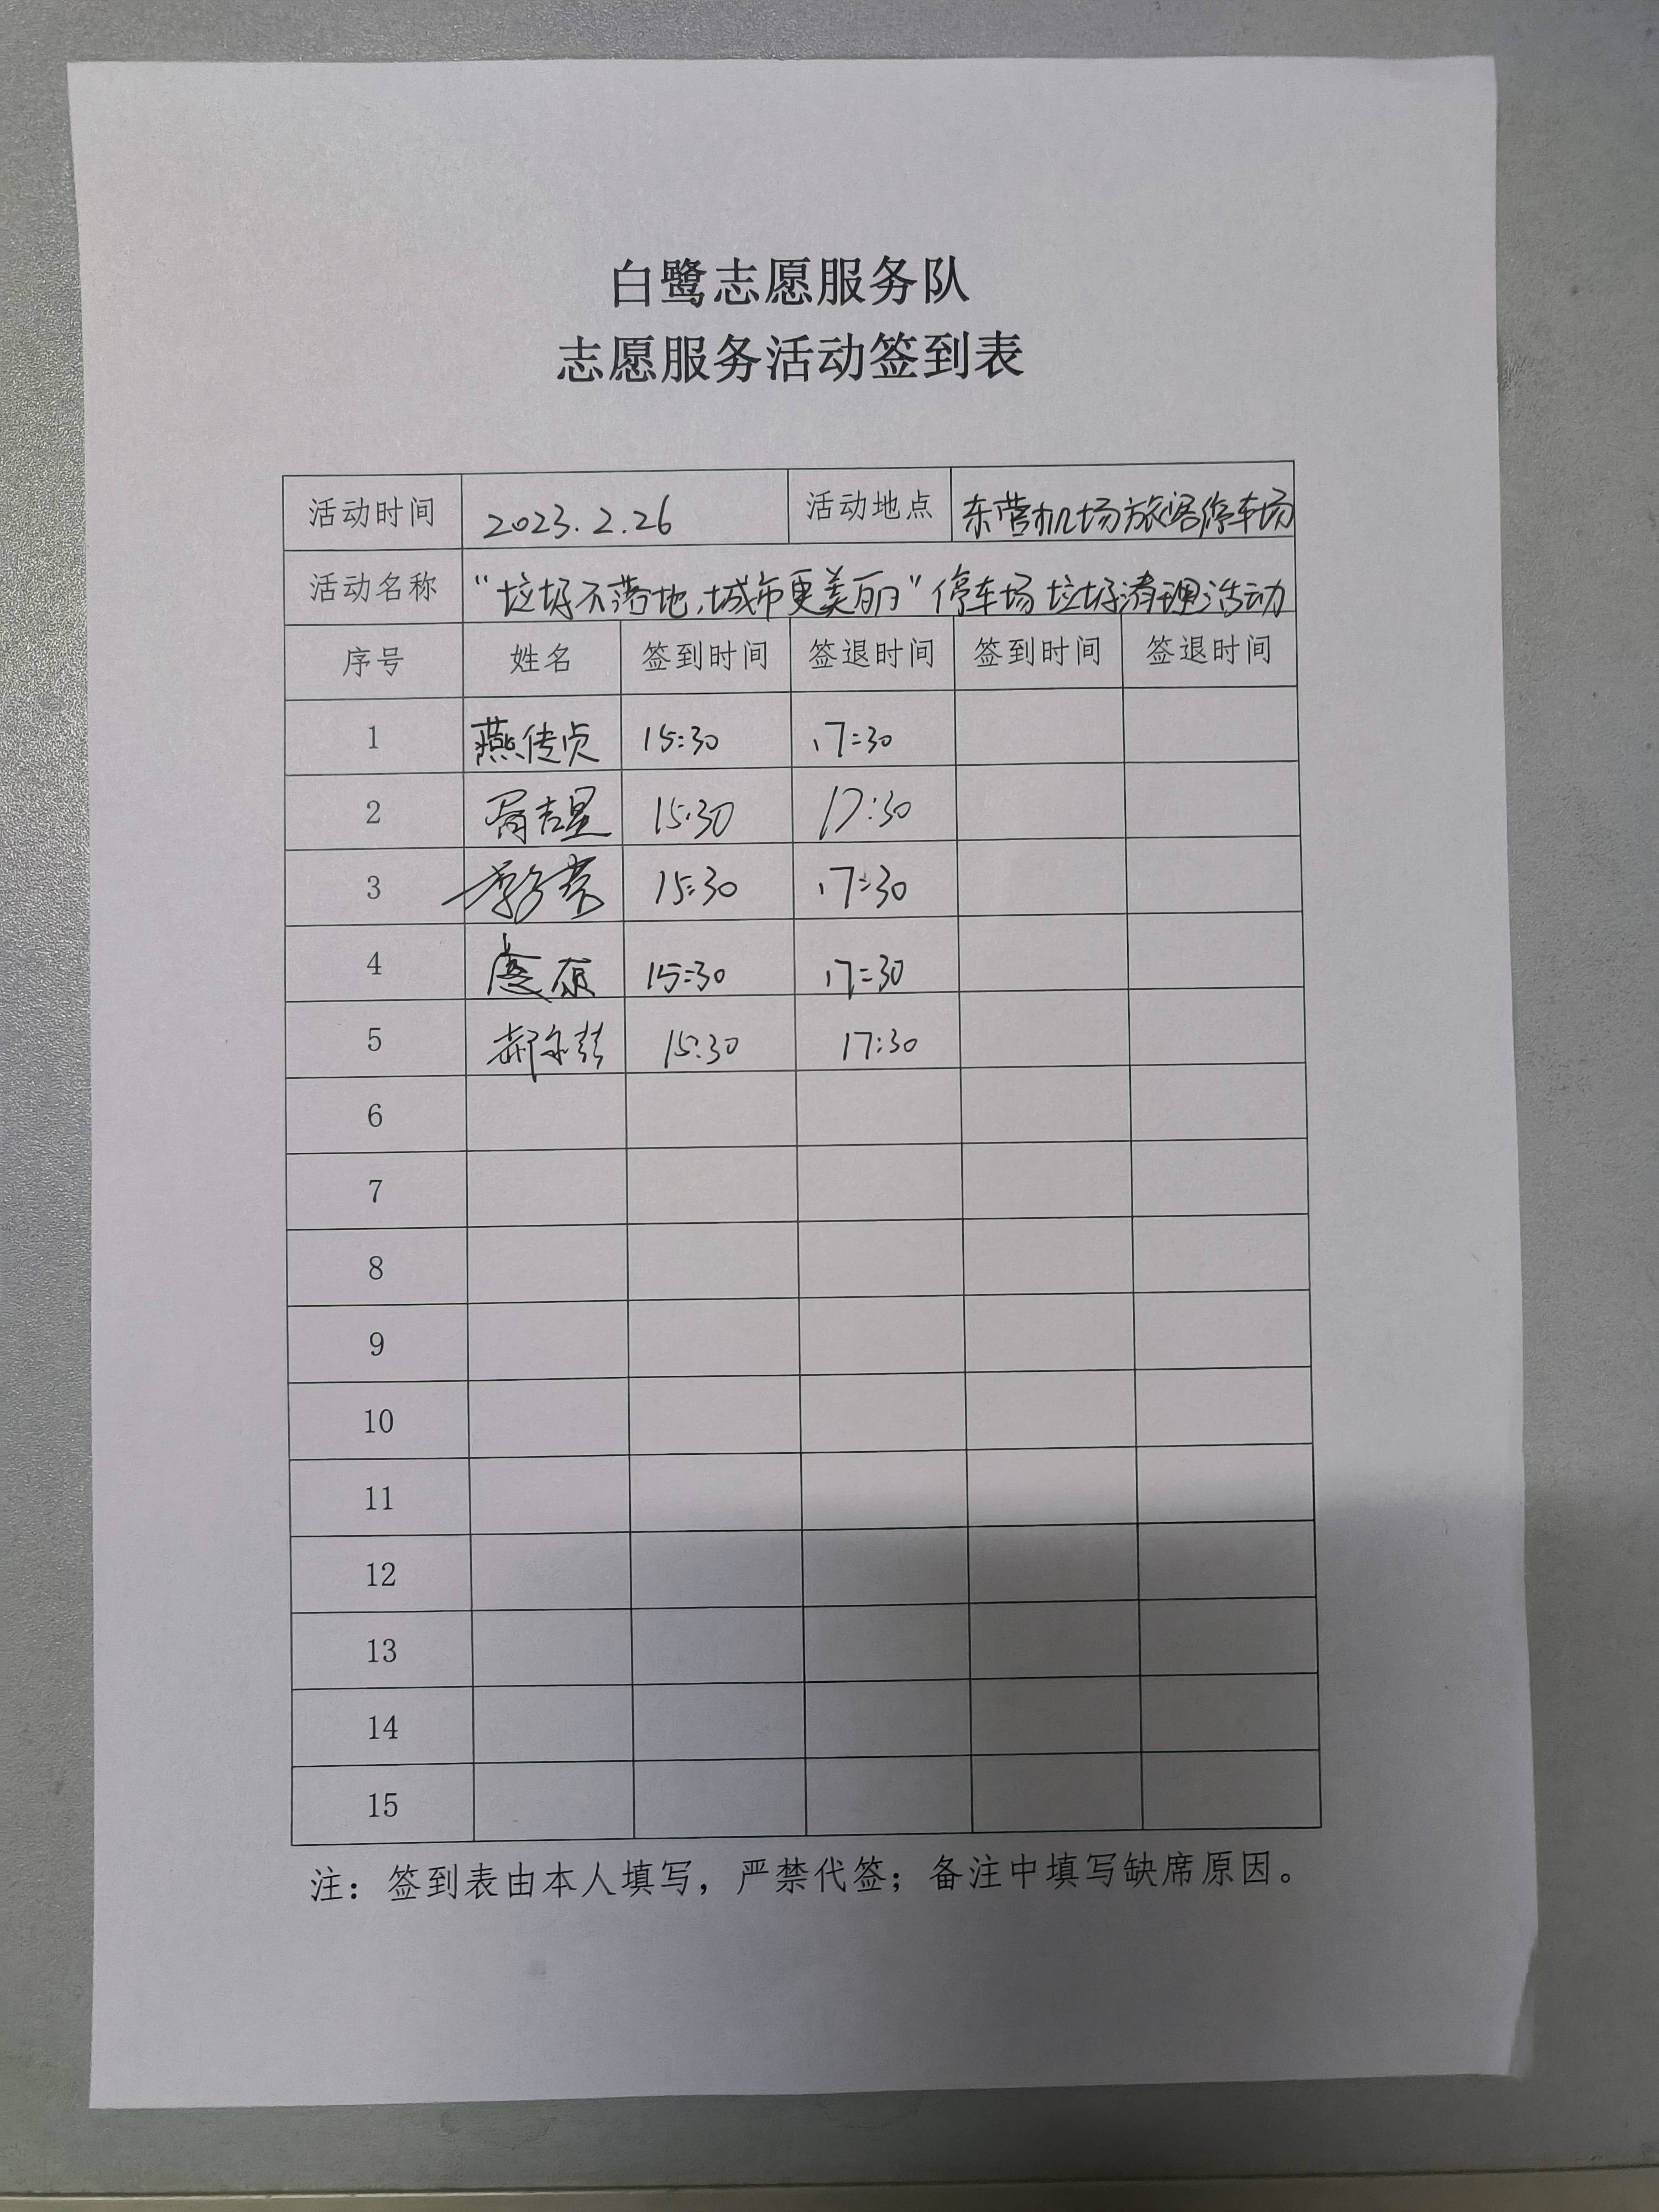 白鹭志愿服务队
志愿服务活动签到表
活动时间 2023.2.26 活动地点 东营机场旅客停车场
活动名称 “垃圾不落地,城市更美丽”停车场垃圾清理活动
序号 姓名 签到时间 签退时间 签到时间 签退时间
1 燕传贞 15:30 17:30
2 吉星 15:30 17:30
3 15:30 17:30
4 15:30 17:30
5 郝 15:30 17:30
6
7
8
9
10
11
12
13
14
15
注：签到表由本人填写，严禁代签；备注中填写缺席原因。